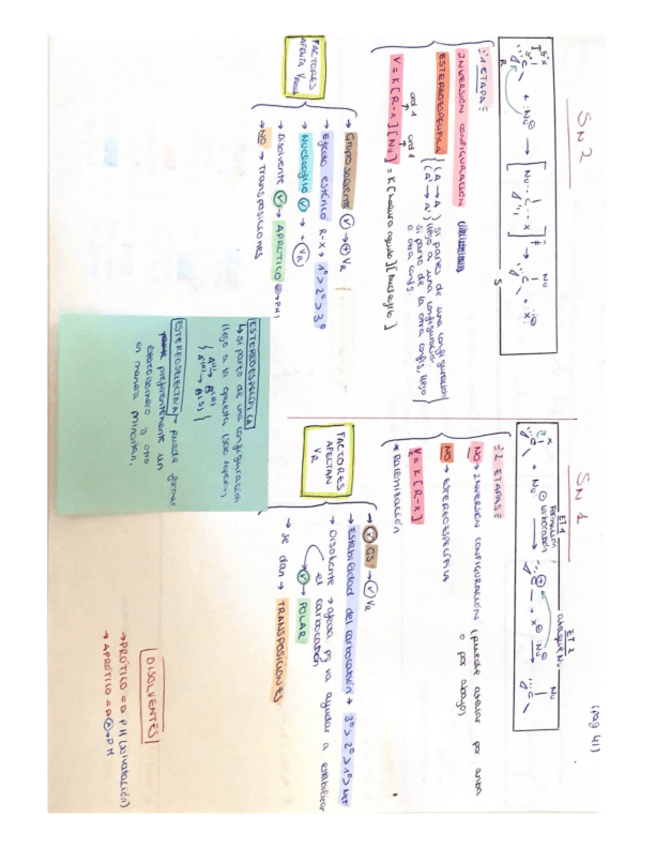 SN2
R
S
"1 ETAPA"
INVERSIÓN CONFIGURACIÓN
ESTEREOESPECÍFICA
si partes de una configuración
llego a una configuración.
Si parto de la otra config, llego
a otra config.
ord 1 ord 1
V = K [R-X] [Nu]
FACTORES
AFECTA
→ Grupo saliente
→ Efecto estérico R-X → 1º > 2º > 3º
→ Nucleófilo
→ Disolvente → APRÓTICO
→ NO → transposiciones
ESTEREOESPECÍFICA
↳ si parto de una configuración
llego a la opuesta
ESTEREOSELECTIVA → puede formar
preferentemente un
estereoisómero u otro
en manera
SN1
(pág 41)
ET 1
Formación
carbocatión
ET 2
ataque Nu
"2 ETAPAS"
NO → INVERSIÓN CONFIGURACIÓN (puede atacar por arriba
o por abajo)
NO → ESTEREOESPECÍFICA
V = K [R-X]
FACTORES
AFECTAN
VR
→ GS → VR
→ Estabilidad del carbocatión → 3º > 2º > 1º > Met
→ Disolvente → afecta pq va ayudar a estabilizar
el carbocatión
→ POLAR
→ se dan → TRANSPOSICIONES
DISOLVENTES
→ PRÓTICO = P H (solvatación)
→ APRÓTICO =